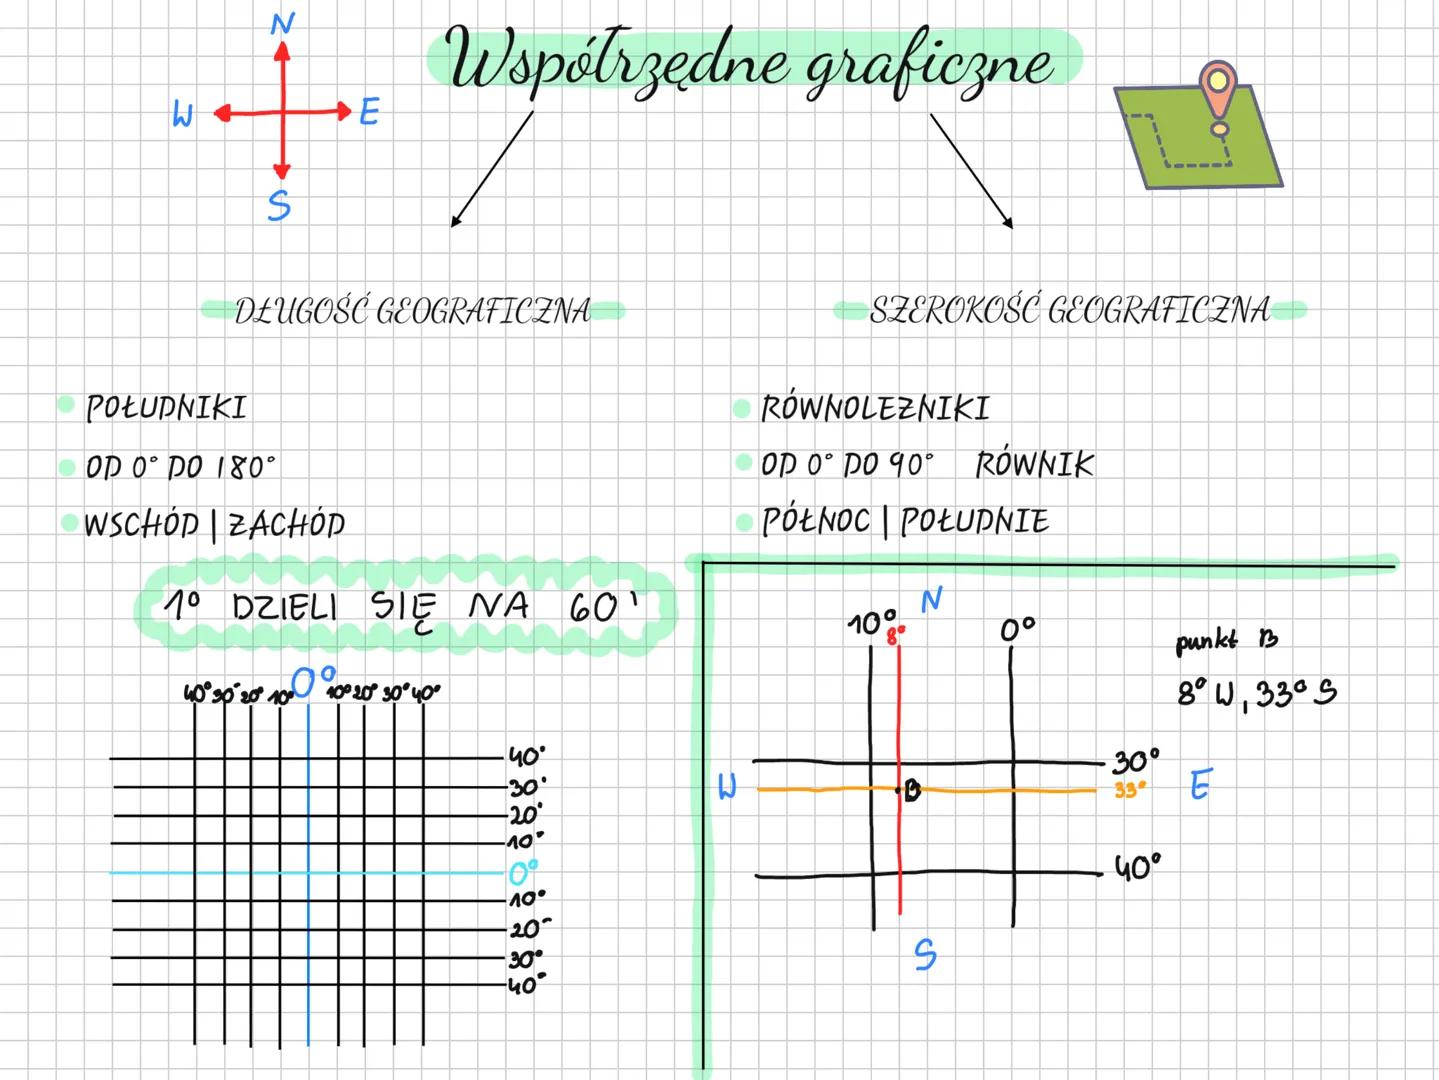 N
Współrzędne graficzne
W E
S
DŁUGOŚĆ GEOGRAFICZNA
SZEROKOŚĆ GEOGRAFICZNA
POŁUDNIKI
OD 0° DO 180°
WSCHÓD | ZACHÓD
RÓWNOLEŻNIKI
OD 0° DO 90° RÓWNIK
PÓŁNOC | POŁUDNIE
1° DZIELI SIĘ NA 60'
40° 30° 20° 10° 0° 10° 20° 30° 40°
40°
30°
20°
10°
0°
10°
20°
30°
40°
N
10° 8° 0°
punkt B
8° W, 33° S
30°
W B 33° E
40°
S